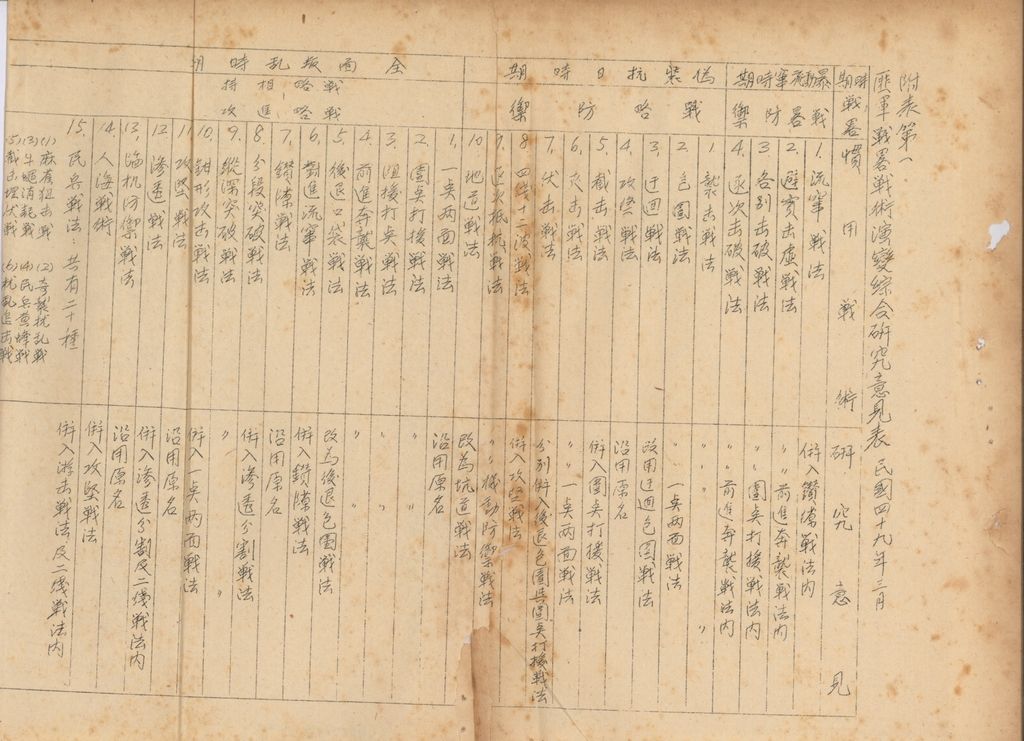 附表第一
匪軍戰畧戰術演變綜合研究意見表 民國四十九年三月
時期 戰畧 慣用戰術 研究意見
暴動流竄時期 戰畧防禦
1. 流竄戰法 併入鑽隙戰法內
2. 避實击虛戰法 〃〃前進奔襲戰法內
3. 各別击破戰法 〃〃圍点打援戰法內
4. 逐次击破戰法 〃〃前進奔襲戰法內
偽裝抗日時期 戰略防禦
1. 襲击戰法 〃 〃 〃
2. 包圍戰法 〃 一点两面戰法
3. 迂迴戰法 改用迂迴包圍戰法
4. 攻堅戰法 沿用原名
5. 截击戰法 併入圍点打援戰法
6. 夾击戰法 〃〃一点两面戰法
7. 伏击戰法 分別併入後退包圍與圍点打援戰法
8. 四線十二波戰法 併入攻堅戰法
9. 逐次抵抗戰法 〃〃機動防禦戰法
10. 地道戰法 改為坑道戰法
全面叛乱時期 戰略相持 戰略進攻
1. 一点两面戰法 沿用原名
2. 圍点打援戰法 〃
3. 阻援打点戰法 〃
4. 前進奔襲戰法 〃
5. 後退口袋戰法 改為後退包圍戰法
6. 蔔進流竄戰法 併入鑽隙戰法
7. 鑽隙戰法 沿用原名
8. 分段突破戰法 併入滲透分割戰法
9. 縱深突破戰法 〃 〃
10. 鉗形攻击戰法 併入一点两面戰法
11. 攻堅戰法 沿用原名
12. 滲透戰法 併入滲透分割及二線戰法內
13. 臨机防禦戰法 沿用原名
14. 人海戰術 併入攻堅戰法
15. 民兵戰法：共有二十種 併入游击戰法及二綫戰法內
(1) 麻雀狙击戰 (2) 奇襲扰乱戰
(3) 牛皝消耗戰 (4) 民兵黄蜂戰
(5) 截击埋伏戰 (6) 扰乱追击戰